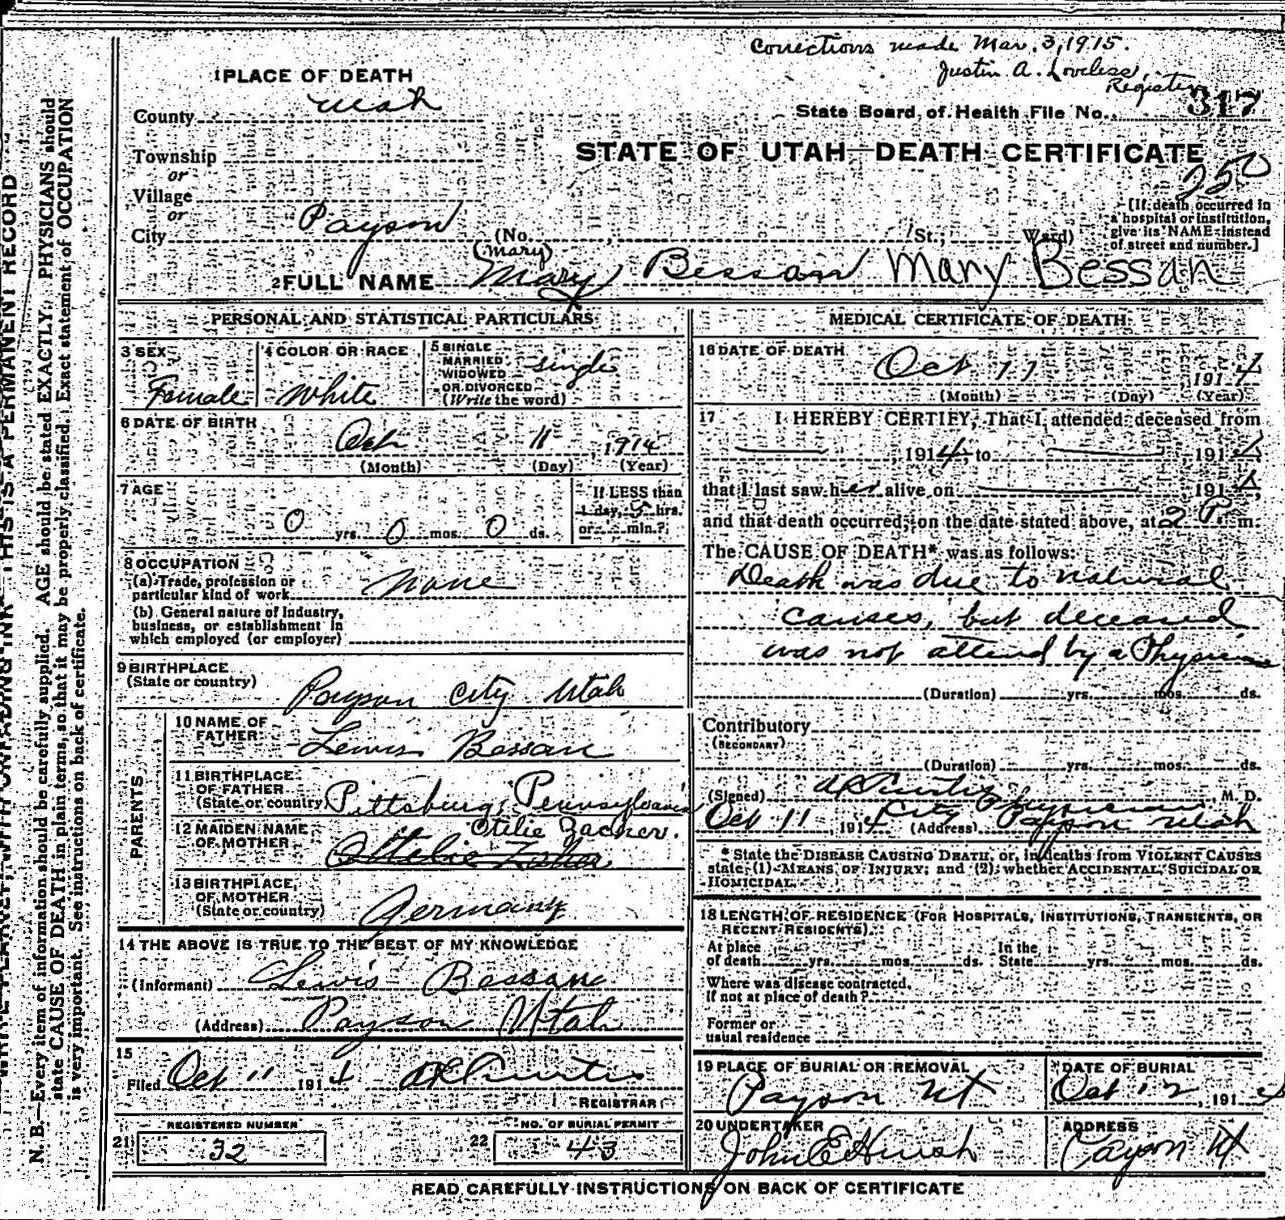 Corrections made Mar. 3, 1915.
Justin A. Loveless,
Register
1 PLACE OF DEATH
County Utah
State Board of Health File No. 317
STATE OF UTAH—DEATH CERTIFICATE
250
Township
or
Village
or
City Payson (No. St.; Ward)
[If death occurred in
a hospital or institution,
give its NAME instead
of street and number.]
(Mary)
2 FULL NAME Mary Bessan Mary Bessan
PERSONAL AND STATISTICAL PARTICULARS
3 SEX
Female
4 COLOR OR RACE
White
5 SINGLE
MARRIED
WIDOWED
OR DIVORCED
(Write the word)
single
6 DATE OF BIRTH
Oct 11, 1914
(Month) (Day) (Year)
7 AGE
0 yrs. 0 mos. 0 ds.
If LESS than
1 day, 5 hrs.
or min.?
8 OCCUPATION
(a) Trade, profession or
particular kind of work none
(b) General nature of Industry,
business, or establishment in
which employed (or employer)
9 BIRTHPLACE
(State or country) Payson City Utah
PARENTS
10 NAME OF
FATHER Lewis Bessan
11 BIRTHPLACE
OF FATHER
(State or country) Pittsburg, Pennsylvania
12 MAIDEN NAME
OF MOTHER Otilie Zacher.
13 BIRTHPLACE
OF MOTHER
(State or country) Germany
14 THE ABOVE IS TRUE TO THE BEST OF MY KNOWLEDGE
(Informant) Lewis Bessan
(Address) Payson Utah
15
Filed Oct 11 1914 A E Curtis
REGISTRAR
REGISTERED NUMBER
21 32
NO. OF BURIAL PERMIT
22 43
MEDICAL CERTIFICATE OF DEATH
16 DATE OF DEATH
Oct 11 1914
(Month) (Day) (Year)
17 I HEREBY CERTIFY, That I attended deceased from
1914 to 1914
that I last saw her alive on 1914
and that death occurred, on the date stated above, at 2 P. m.
The CAUSE OF DEATH* was as follows:
Death was due to natural
causes, but deceased
was not attend by a Physician
(Duration) yrs. mos. ds.
Contributory
(SECONDARY)
(Duration) yrs. mos. ds.
(Signed) A E Curtis City Physician, M. D.
Oct 11, 1914 (Address) Payson Utah
* State the DISEASE CAUSING DEATH, or, in deaths from VIOLENT CAUSES
state (1) MEANS OF INJURY; and (2) whether ACCIDENTAL, SUICIDAL OR
HOMICIDAL.
18 LENGTH OF RESIDENCE (FOR HOSPITALS, INSTITUTIONS, TRANSIENTS, OR
RECENT RESIDENTS).
At place
of death yrs. mos. ds.
In the
State yrs. mos. ds.
Where was disease contracted,
If not at place of death?
Former or
usual residence
19 PLACE OF BURIAL OR REMOVAL
Payson Ut
DATE OF BURIAL
Oct 12, 1914
20 UNDERTAKER
John E Huish
ADDRESS
Payson Ut
READ CAREFULLY INSTRUCTIONS ON BACK OF CERTIFICATE
N. B.—Every item of information should be carefully supplied. AGE should be stated EXACTLY. PHYSICIANS should
state CAUSE OF DEATH in plain terms, so that it may be properly classified. Exact statement of OCCUPATION
is very important. See instructions on back of certificate.
THIS IS A PERMANENT RECORD